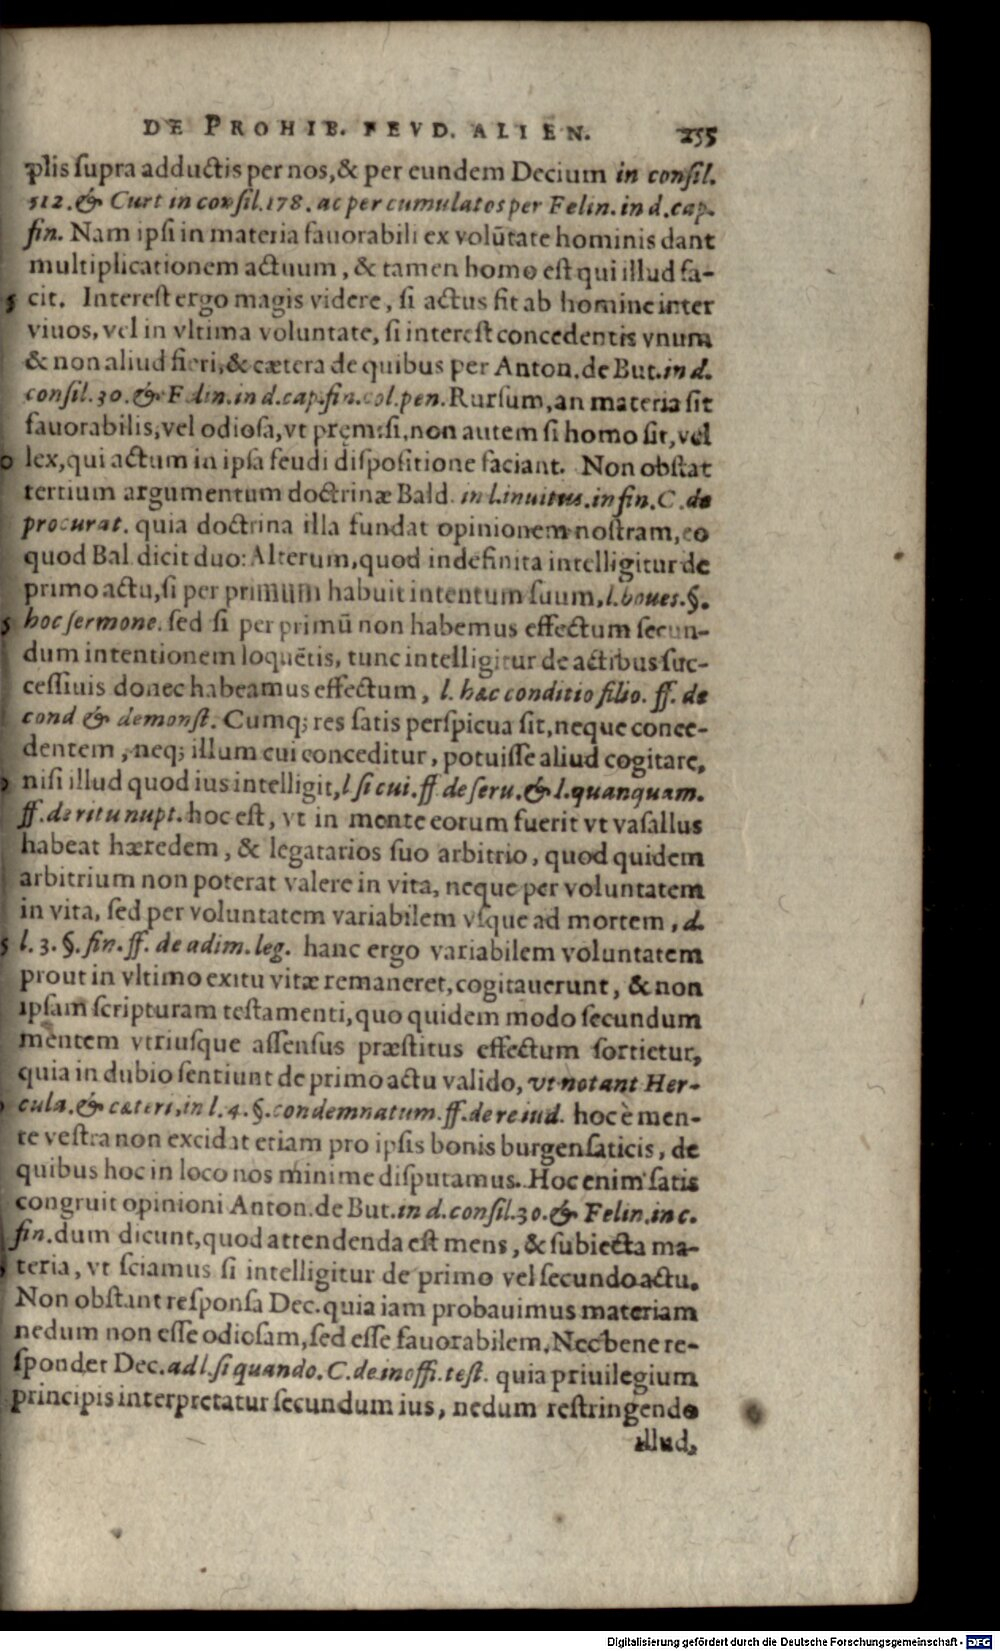 DE PROHIB. FEVD. ALIEN. 255
plis supra adductis per nos, & per eundem Decium in consil.
512. & Curt in consil. 178. ac per cumulatos per Felin. in d. cap.
fin. Nam ipsi in materia fauorabili ex volũtate hominis dant
multiplicationem actuum, & tamen homo est qui illud fa-
5 cit. Interest ergo magis videre, si actus sit ab homine inter
viuos, vel in vltima voluntate, si interest concedentis vnum
& non aliud fieri, & cætera de quibus per Anton. de But. in d.
consil. 30. & Felin. in d. cap. fin. col. pen. Rursum, an materia sit
fauorabilis, vel odiosa, vt pręmisi, non autem si homo sit, vel
0 lex, qui actum in ipsa feudi dispositione faciant. Non obstat
tertium argumentum doctrinæ Bald. in l. inuitus. in fin. C. de
procurat. quia doctrina illa fundat opinionem nostram, eo
quod Bal dicit duo: Alterum, quod indefinita intelligitur de
primo actu, si per primum habuit intentum suum, l. boues. §.
5 hoc sermone. sed si per primũ non habemus effectum secun-
dum intentionem loquẽtis, tunc intelligitur de actibus suc-
cessiuis donec habeamus effectum, l. hæc conditio filio. ff. de
cond & demonst. Cumq; res satis perspicua sit, neque conce-
dentem, neq; illum cui conceditur, potuisse aliud cogitare,
nisi illud quod ius intelligit, l si cui. ff de seru. & l. quanquam.
ff. de ritu nupt. hoc est, vt in mente eorum fuerit vt vasallus
habeat hæredem, & legatarios suo arbitrio, quod quidem
arbitrium non poterat valere in vita, neque per voluntatem
in vita, sed per voluntatem variabilem vsque ad mortem, d.
5 l. 3. §. fin. ff. de adim. leg. hanc ergo variabilem voluntatem
prout in vltimo exitu vitæ remaneret, cogitauerunt, & non
ipsam scripturam testamenti, quo quidem modo secundum
mentem vtriusque assensus præstitus effectum sortietur,
quia in dubio sentiunt de primo actu valido, vt notant Her-
cula. & cæteri, in l. 4. §. condemnatum. ff. de re iud. hoc è men-
te vestra non excidat etiam pro ipsis bonis burgensaticis, de
quibus hoc in loco nos minime disputamus. Hoc enim satis
congruit opinioni Anton. de But. in d. consil. 30. & Felin. in c.
fin. dum dicunt, quod attendenda est mens, & subiecta ma-
teria, vt sciamus si intelligitur de primo vel secundo actu.
Non obstant responsa Dec. quia iam probauimus materiam
nedum non esse odiosam, sed esse fauorabilem. Nec bene re-
spondet Dec. ad l. si quando. C. de inoffi. test. quia priuilegium
principis interpretatur secundum ius, nedum restringendo
illud,
Digitalisierung gefördert durch die Deutsche Forschungsgemeinschaft - DFG